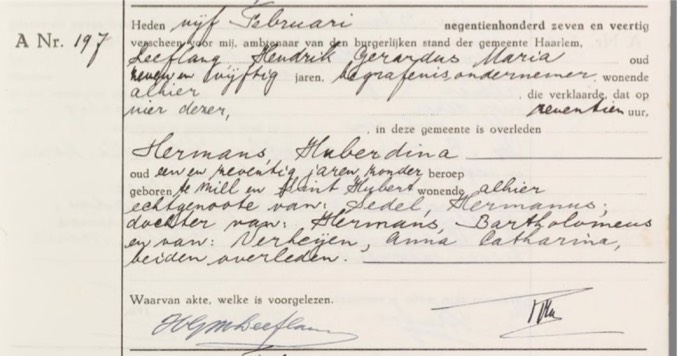 A Nr. 197
Heden vijf Februari negentienhonderd zeven en veertig
verscheen voor mij, ambtenaar van den burgerlijken stand der gemeente Haarlem,
Leeflang, Hendrik Gerardus Maria oud
zeven en vijftig jaren, begrafenisondernemer, wonende
alhier, die verklaarde, dat op
vier dezer, zeventien uur,
, in deze gemeente is overleden
Hermans, Huberdina
oud een en zeventig jaren, zonder beroep
geboren te Mill en Sint Hubert wonende alhier
echtgenoote van: Sedel, Hermanus;
dochter van: Hermans, Bartholomeus
en van: Verheijen, Anna Catharina,
beiden overleden.
Waarvan akte, welke is voorgelezen.
HGM Leeflang